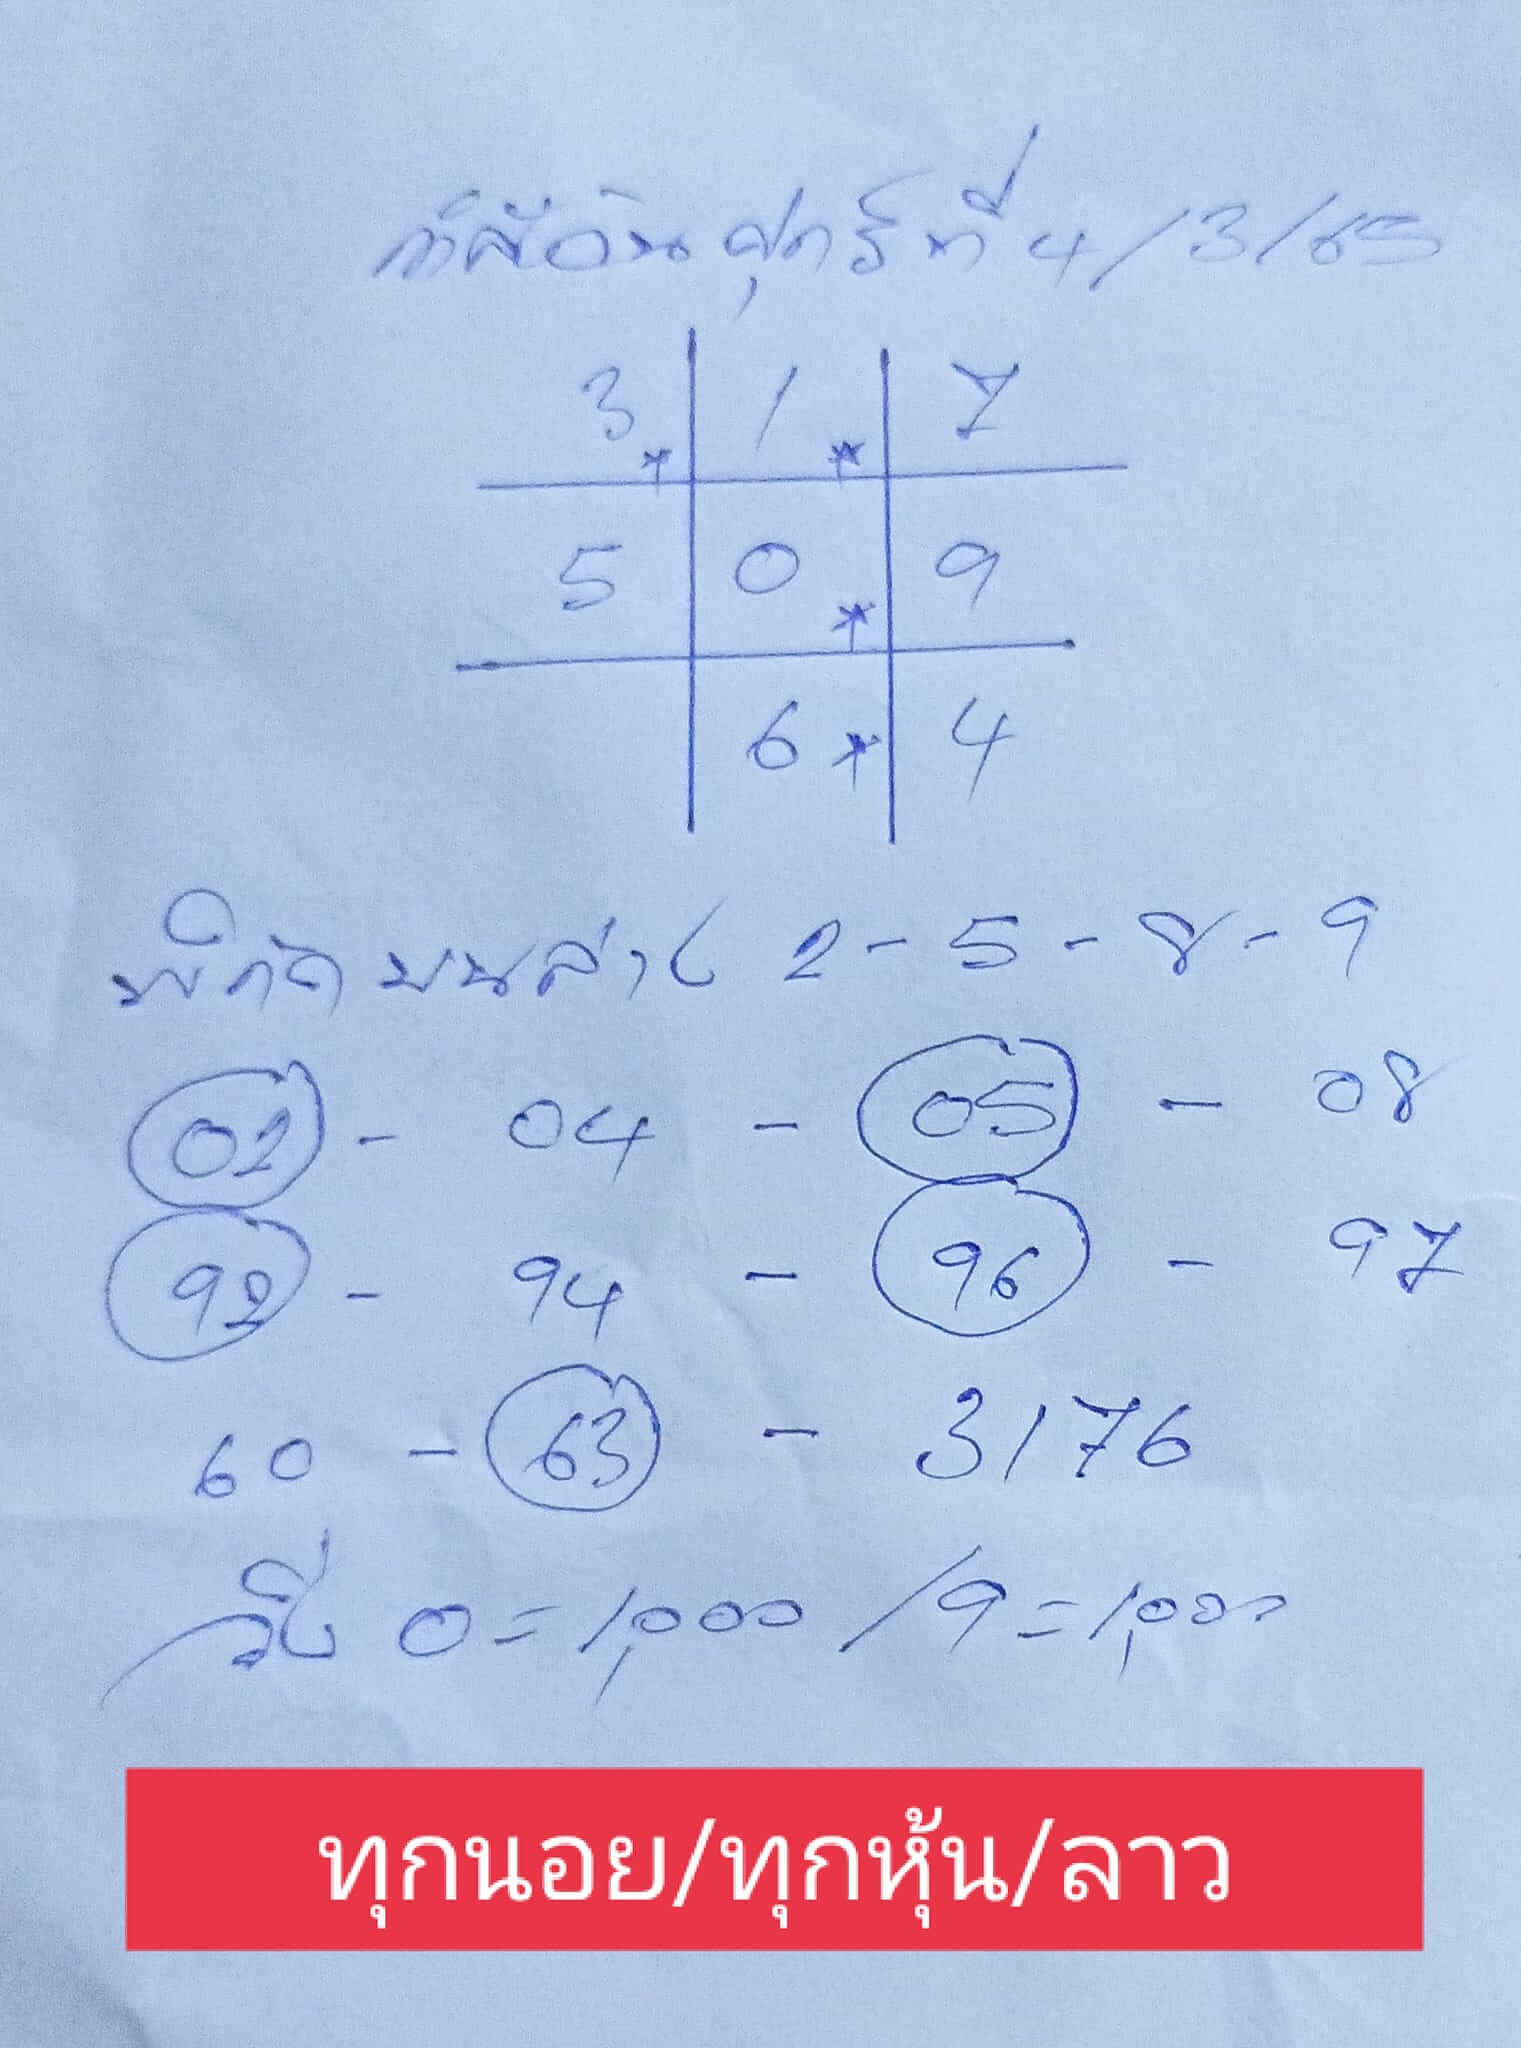 วันศุกร์ที่ 4/3/65
3 1 7
5 0 9
6 4
พิกัด บนล่าง 2-5-8-9
02 - 04 - 05 - 08
92 - 94 - 96 - 97
60 - 63 - 3176
วิ่ง 0=1,000/9=1,000
ทุกนอย/ทุกหุ้น/ลาว